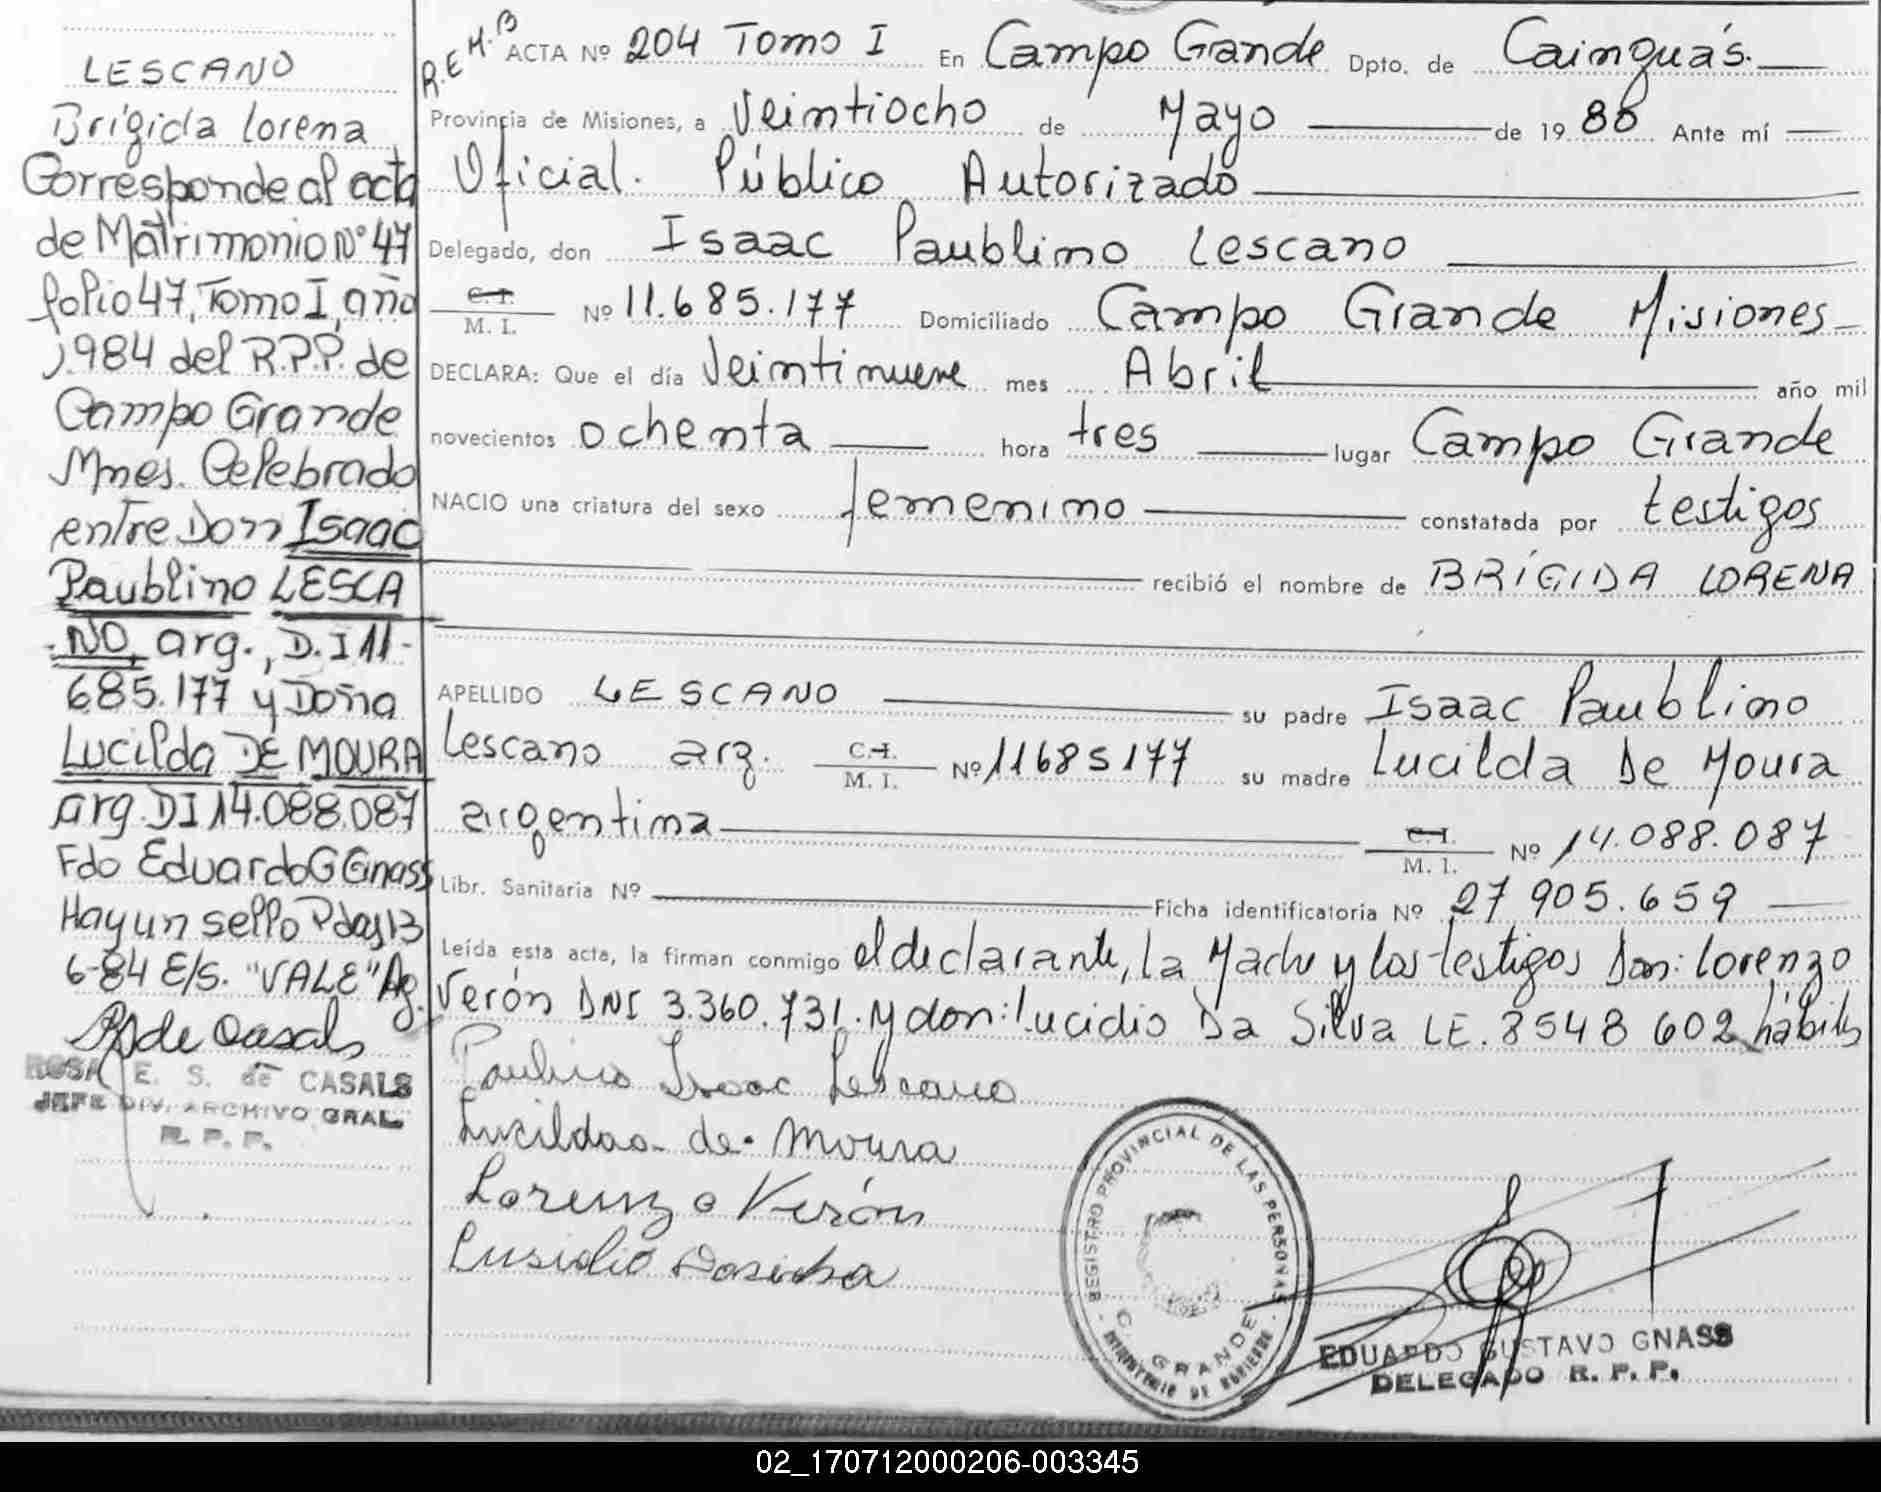 LESCANO
Brígida Lorena
Corresponde al acta
de Matrimonio Nº 47
folio 47, Tomo I, año
1.984 del R.P.P. de
Campo Grande
Mnes. Celebrado
entre Don Isaac
Paublino LESCA
-NO, arg., D.I 11-
685.177 y Doña
Lucilda DE MOURA
arg. DI 14.088.087
Fdo Eduardo G Gnass
Hay un sello Pdas 13
6-84 E/S. "VALE" Ag.
de Casals
ROSA E. S. de CASALS
JEFE DIV. ARCHIVO GRAL.
R. P. P.
R.E.M.B ACTA Nº 204 Tomo I En Campo Gande Dpto. de Cainguás.
Provincia de Misiones, a Veintiocho de Mayo de 19 80 Ante mí
Oficial. Público Autorizado
Delegado, don Isaac Paublino Lescano
C.I. / M. I. Nº 11.685.177 Domiciliado Campo Grande Misiones
DECLARA: Que el día Veintinueve mes Abril año mil
novecientos ochenta hora tres lugar Campo Grande
NACIO una criatura del sexo femenino constatada por testigos
recibió el nombre de BRÍGIDA LORENA
APELLIDO LESCANO su padre Isaac Paublino
Lescano arg. C.I. / M. I. Nº 11685177 su madre Lucilda De Moura
argentina C.I. / M. I. Nº 14.088.087
Libr. Sanitaria Nº Ficha identificatoria Nº 27 905.659
Leída ésta acta, la firman conmigo el declarante, la Madre y los testigos Don: Lorenzo
Verón DNI 3.360.731. y don: Lucidio Da Silva LE. 8548 602 hábiles
Paulino Isaac Lescano
Lucildao de Moura
Lorenzo Verón
Lusidio Dasilba
REGISTRO PROVINCIAL DE LAS PERSONAS
C. GRANDE
MINISTERIO DE GOBIERNO
EDUARDO GUSTAVO GNASS
DELEGADO R. P. P.
02_170712000206-003345